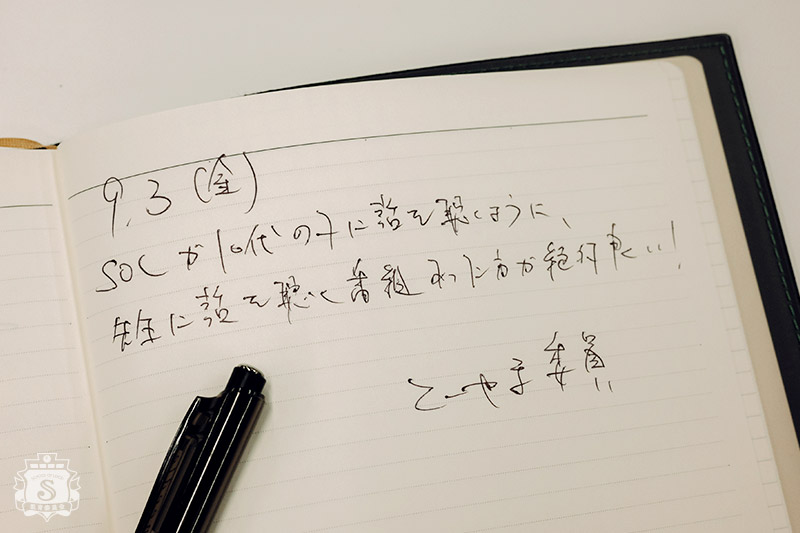 9.3 (金)
SOLが10代の子に話を聴くように、
先生に話を聴く番組やった方が絶対良い!
とーやま委員
S